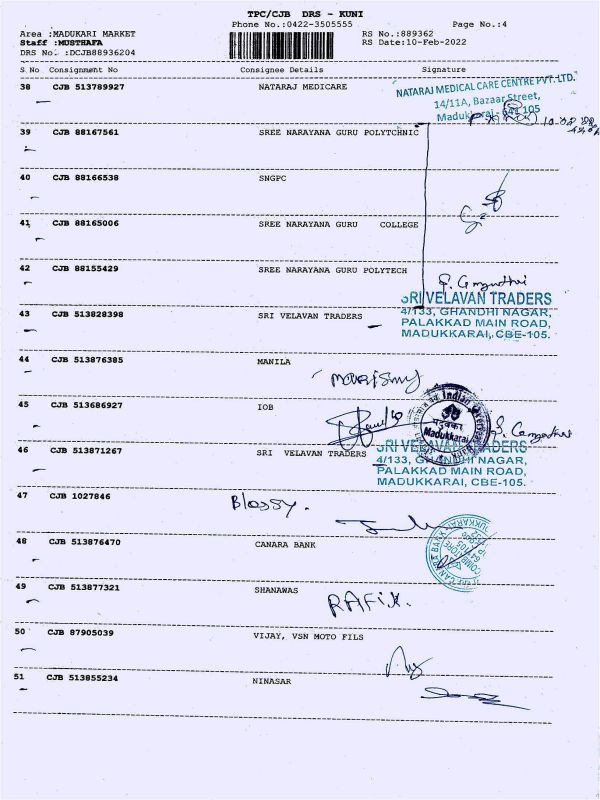 TPC/CJB DRS - KUNI
Phone No.:0422-3505555 Page No.:4
Area :MADUKARI MARKET RS No.:889362
Staff :MUSTHAFA RS Date:10-Feb-2022
DRS No. :DCJB88936204
S No Consignment No Consignee Details Signature
38 CJB 513789927 NATARAJ MEDICARE
NATARAJ MEDICAL CARE CENTRE PVT.LTD.
14/11A, Bazaar Street,
Madukkarai - 641 105
39 CJB 88167561 SREE NARAYANA GURU POLYTCHNIC
40 CJB 88166538 SNGPC
41 CJB 88165006 SREE NARAYANA GURU COLLEGE
42 CJB 88155429 SREE NARAYANA GURU POLYTECH
43 CJB 513828398 SRI VELAVAN TRADERS
SRI VELAVAN TRADERS
4/133, GHANDHI NAGAR,
PALAKKAD MAIN ROAD,
MADUKKARAI, CBE-105.
44 CJB 513876385 MANILA
45 CJB 513686927 IOB
Indian Overseas
Madukkarai
46 CJB 513871267 SRI VELAVAN TRADERS
SRI VELAVAN TRADERS
4/133, GHANDHI NAGAR,
PALAKKAD MAIN ROAD,
MADUKKARAI, CBE-105.
47 CJB 1027846 Blossy.
48 CJB 513876470 CANARA BANK
49 CJB 513877321 SHANAWAS
RAFIK.
50 CJB 87905039 VIJAY, VSN MOTO FILS
51 CJB 513855234 NINASAR